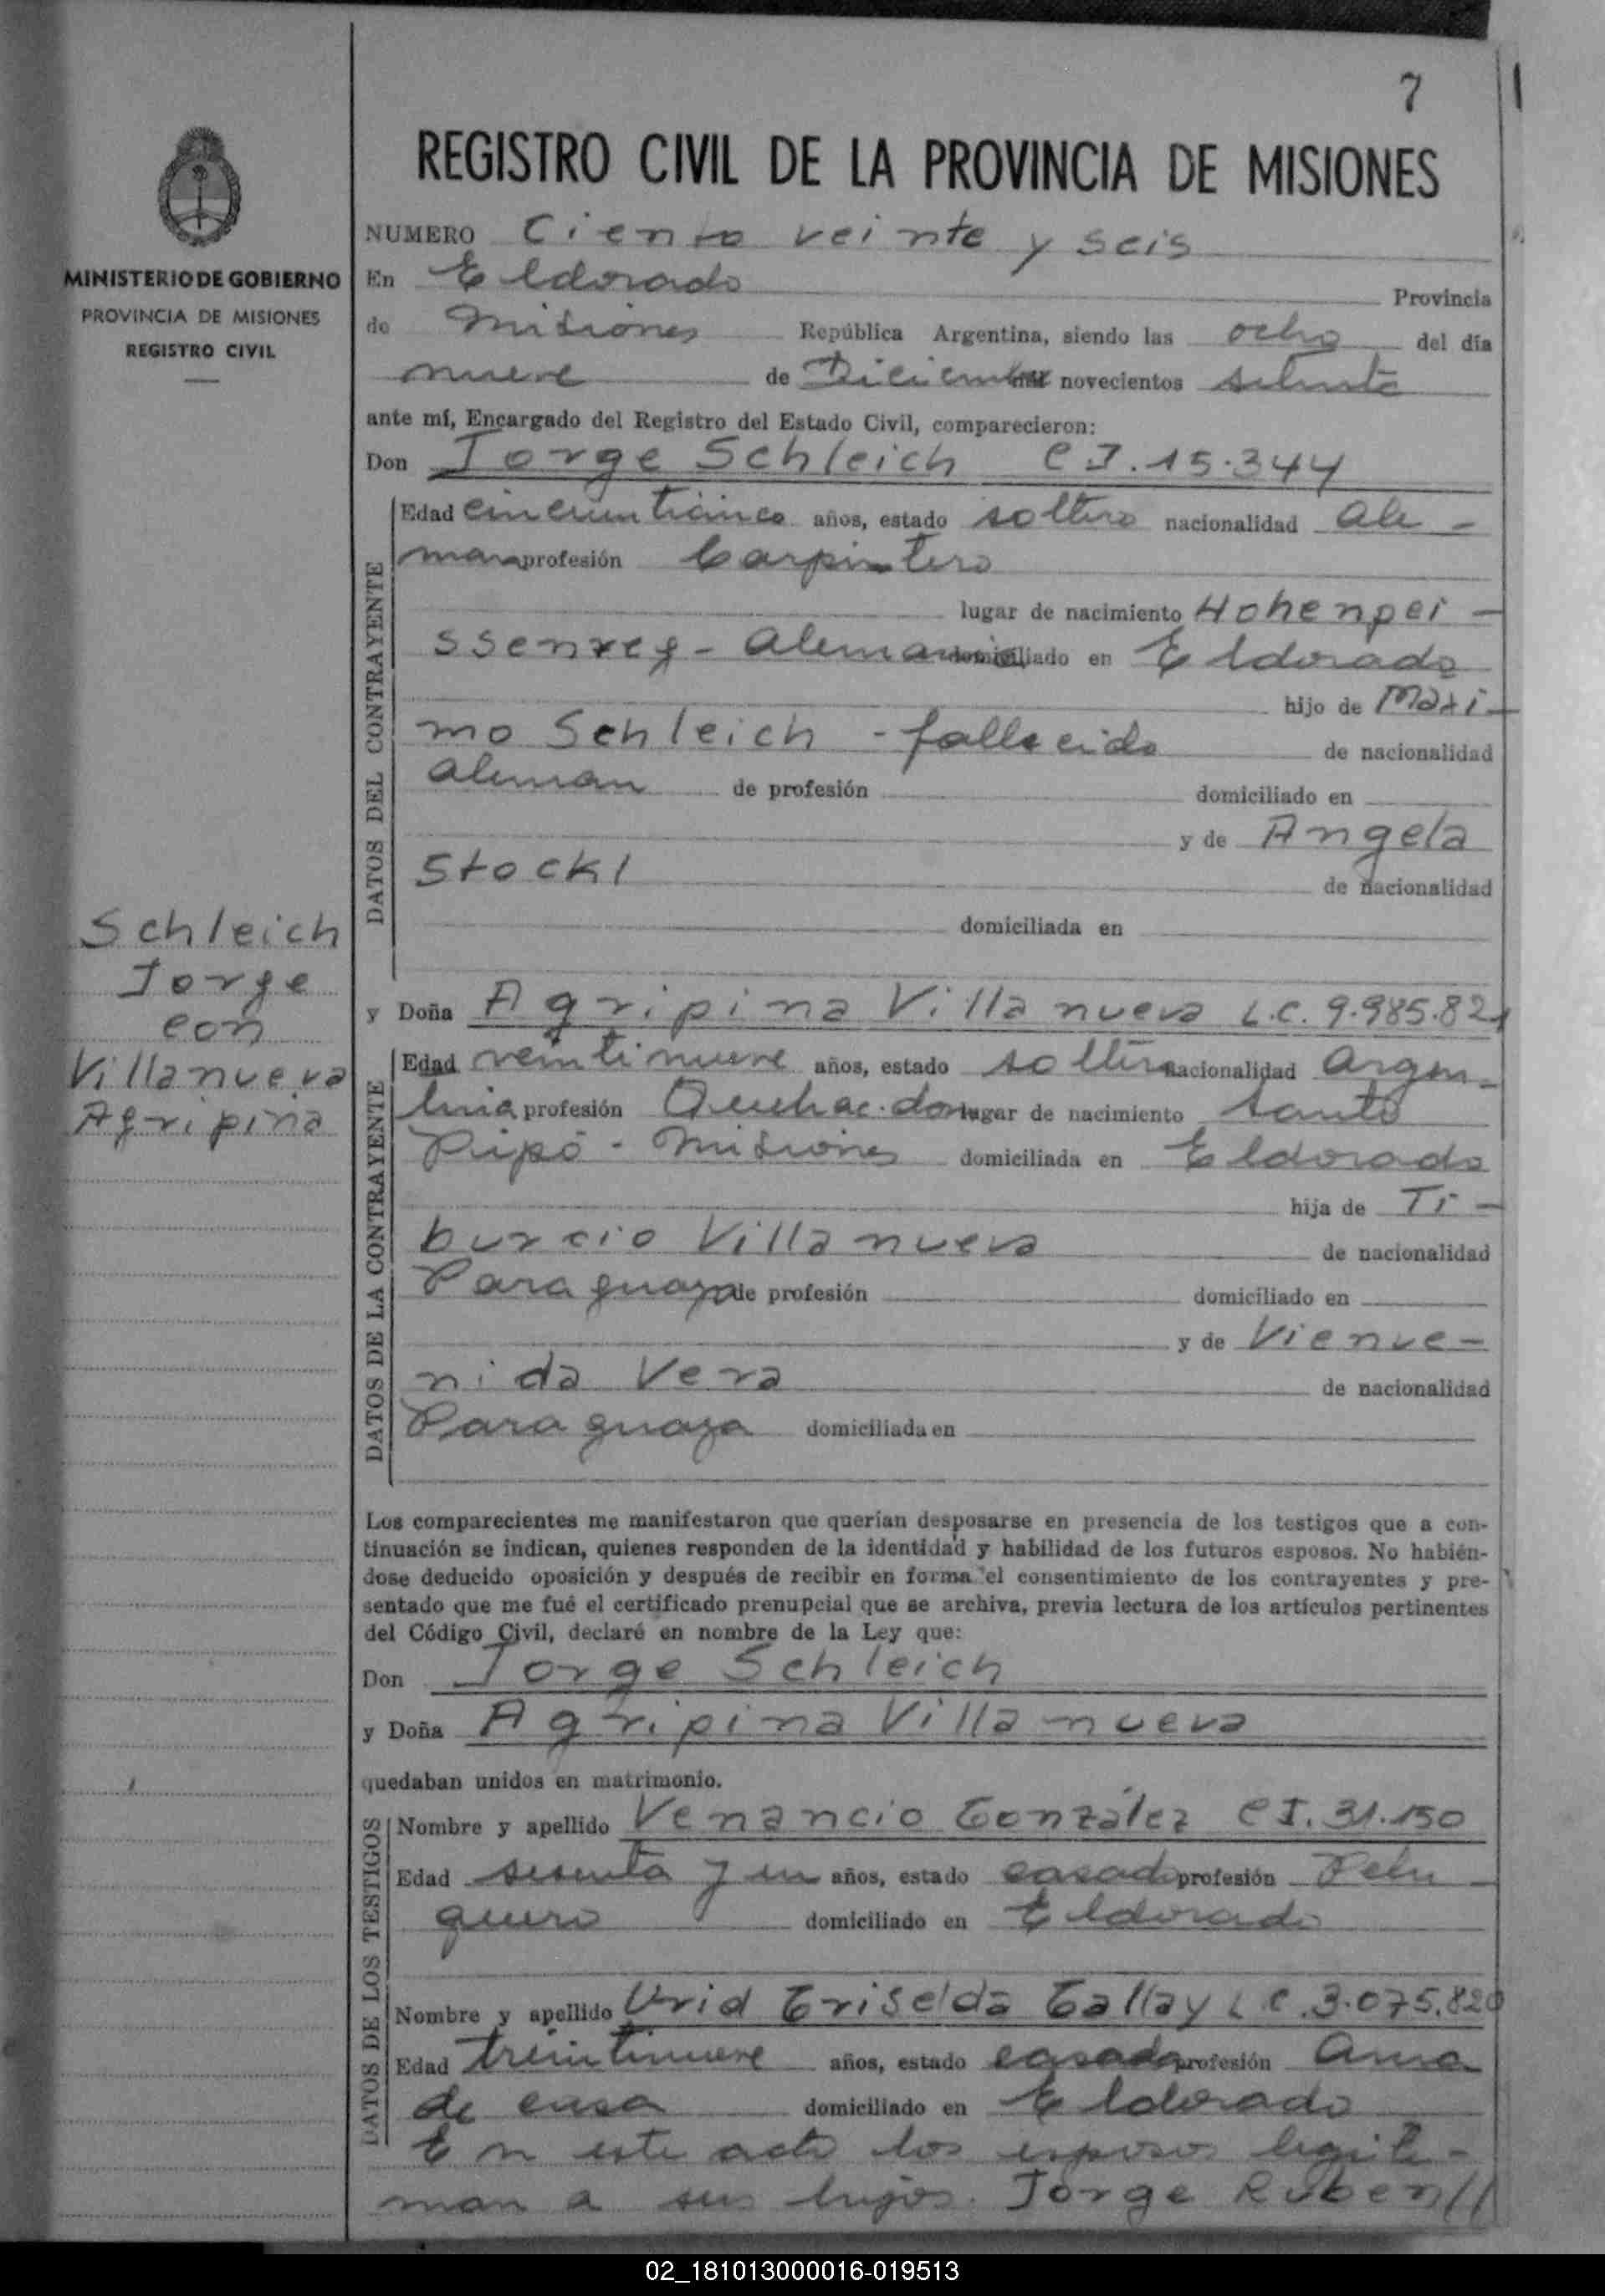 7
REGISTRO CIVIL DE LA PROVINCIA DE MISIONES
MINISTERIO DE GOBIERNO
PROVINCIA DE MISIONES
REGISTRO CIVIL
NUMERO Ciento veinte y seis
En Eldorado Provincia
de Misiones República Argentina, siendo las ocho del día
nueve de Diciembre mil novecientos setenta
ante mí, Encargado del Registro del Estado Civil, comparecieron:
Don Jorge Schleich C I. 15.344
DATOS DEL CONTRAYENTE
Edad cincuenticinco años, estado soltero nacionalidad Ale-
mana profesión Carpintero
lugar de nacimiento Hohenpei-
ssenreg - Alemania domiciliado en Eldorado
hijo de Maxi-
mo Schleich - fallecido de nacionalidad
Aleman de profesión domiciliado en
y de Angela
Stockl de nacionalidad
domiciliada en
Schleich
Jorge
con
Villanueva
Agripina
y Doña Agripina Villanueva L.C. 9.985.821
DATOS DE LA CONTRAYENTE
Edad veintinueve años, estado soltera nacionalidad Argen-
tina profesión Quehac. dom lugar de nacimiento Santo
Pipó - Misiones domiciliada en Eldorado
hija de Ti-
burcio Villanueva de nacionalidad
Paraguaya de profesión domiciliado en
y de Vienve-
nida Vera de nacionalidad
Paraguaya domiciliada en
Los comparecientes me manifestaron que querían desposarse en presencia de los testigos que a con-
tinuación se indican, quienes responden de la identidad y habilidad de los futuros esposos. No habién-
dose deducido oposición y después de recibir en forma el consentimiento de los contrayentes y pre-
sentado que me fué el certificado prenupcial que se archiva, previa lectura de los artículos pertinentes
del Código Civil, declaré en nombre de la Ley que:
Don Jorge Schleich
y Doña Agripina Villanueva
quedaban unidos en matrimonio.
DATOS DE LOS TESTIGOS
Nombre y apellido Venancio González C I. 31.150
Edad sesenta y un años, estado casado profesión Pelu
quero domiciliado en Eldorado
Nombre y apellido Urid Griselda Gallay L C. 3.075.820
Edad treintinueve años, estado casada profesión Ama
de casa domiciliado en Eldorado
En este acto los esposos legiti-
man a sus hijos. Jorge Ruben //
02_181013000016-019513